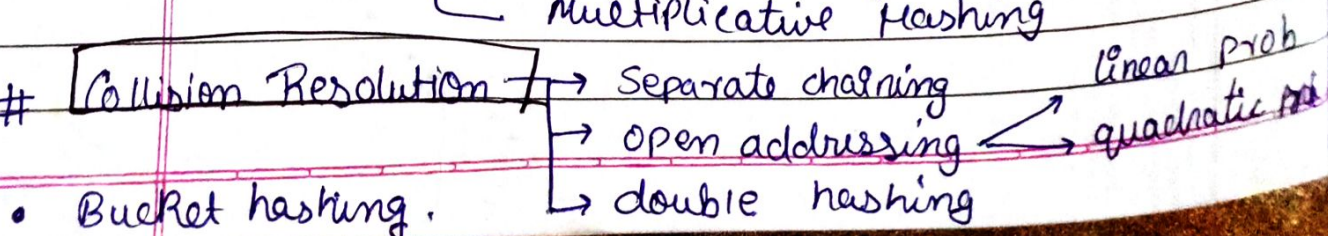 Multiplicative Hashing
# Collision Resolution → Separate chaining
→ open addressing → linear prob
→ quadratic
→ double hashing
• Bucket hashing.